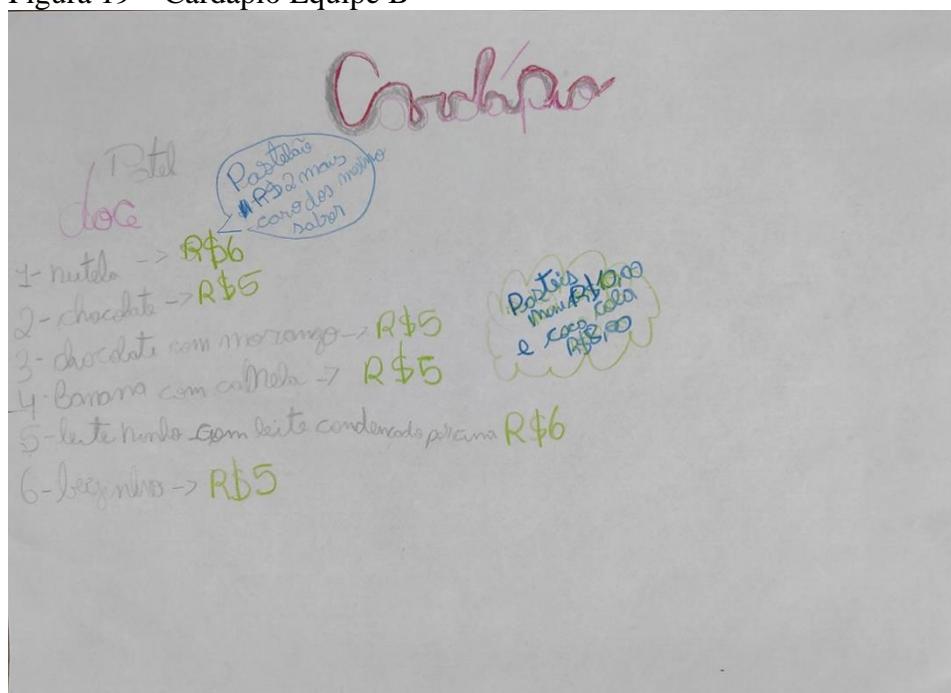 Figura 19 – Cardápio Equipe B
Cardápio
Pastel
doce
Pastelão
R$2 mais
caro dos mesmo
sabor
1- nutela -> R$6
2- chocolate -> R$5
3- chocolate com morango -> R$5
4- Banana com -> R$5
5- leite ninho com leite condençado por cima R$6
6- beijinho -> R$5
Pastéis
mini R$10,00
e coca cola
R$8,00